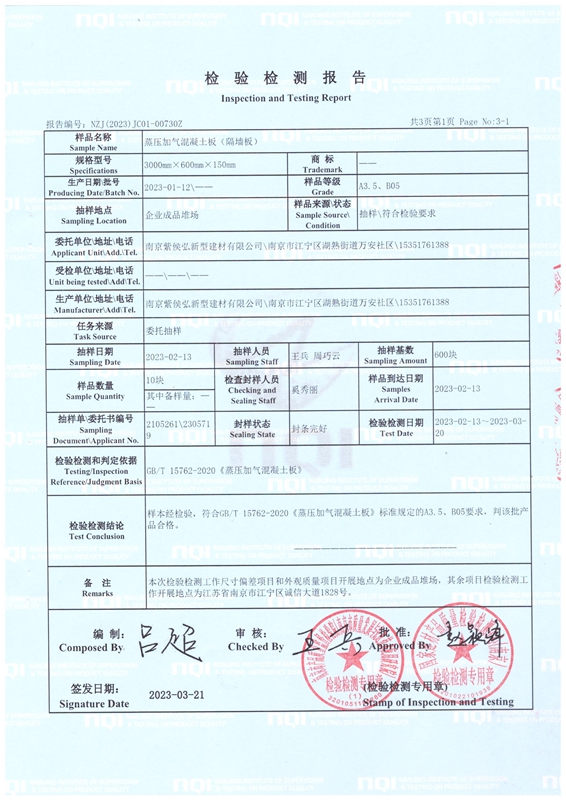 检验检测报告
Inspection and Testing Report
报告编号：NZJ(2023)JC01-00730Z
共3页第1页 Page No:3-1
样品名称
Sample Name
蒸压加气混凝土板（隔墙板）
规格型号
Specifications
3000mm×600mm×150mm
商 标
Trademark
——
生产日期\批号
Producing Date/Batch No.
2023-01-12\——
样品等级
Grade
A3.5、B05
抽样地点
Sampling Location
企业成品堆场
样品来源\状态
Sample Source\
Condition
抽样\符合检验要求
委托单位\地址\电话
Applicant Unit\Add.\Tel.
南京紫侯弘新型建材有限公司\南京市江宁区湖熟街道万安社区\15351761388
受检单位\地址\电话
Unit being tested\Add\Tel.
——\——\——
生产单位\地址\电话
Manufacturer\Add\Tel.
南京紫侯弘新型建材有限公司\南京市江宁区湖熟街道万安社区\15351761388
任务来源
Task Source
委托抽样
抽样日期
Sampling Date
2023-02-13
抽样人员
Sampling Staff
王兵 周巧云
抽样基数
Sampling Amount
600块
样品数量
Sample Quantity
10块
其中备样量：——
检查封样人员
Checking and
Sealing Staff
奚秀丽
样品到达日期
Samples
Arrival Date
2023-02-13
抽样单\委托书编号
Sampling
Document\Applicant No.
2105261\2305719
封样状态
Sealing State
封条完好
检验检测日期
Test Date
2023-02-13～2023-03-20
检验检测和判定依据
Testing/Inspection
Reference/Judgment Basis
GB/T 15762-2020《蒸压加气混凝土板》
检验检测结论
Test Conclusion
样本经检验，符合GB/T 15762-2020《蒸压加气混凝土板》标准规定的A3.5、B05要求，判该批产
品合格。
备 注
Remarks
本次检验检测工作尺寸偏差项目和外观质量项目开展地点为企业成品堆场，其余项目检验检测工
作开展地点为江苏省南京市江宁区诚信大道1828号。
编 制：
Composed By
吕超
审 核：
Checked By
王兵
批 准：
Approved By
签发日期：
Signature Date
2023-03-21
检验检测专用章
(1)
检验检测专用章
(检验检测专用章)
Stamp of Inspection and Testing
nqi